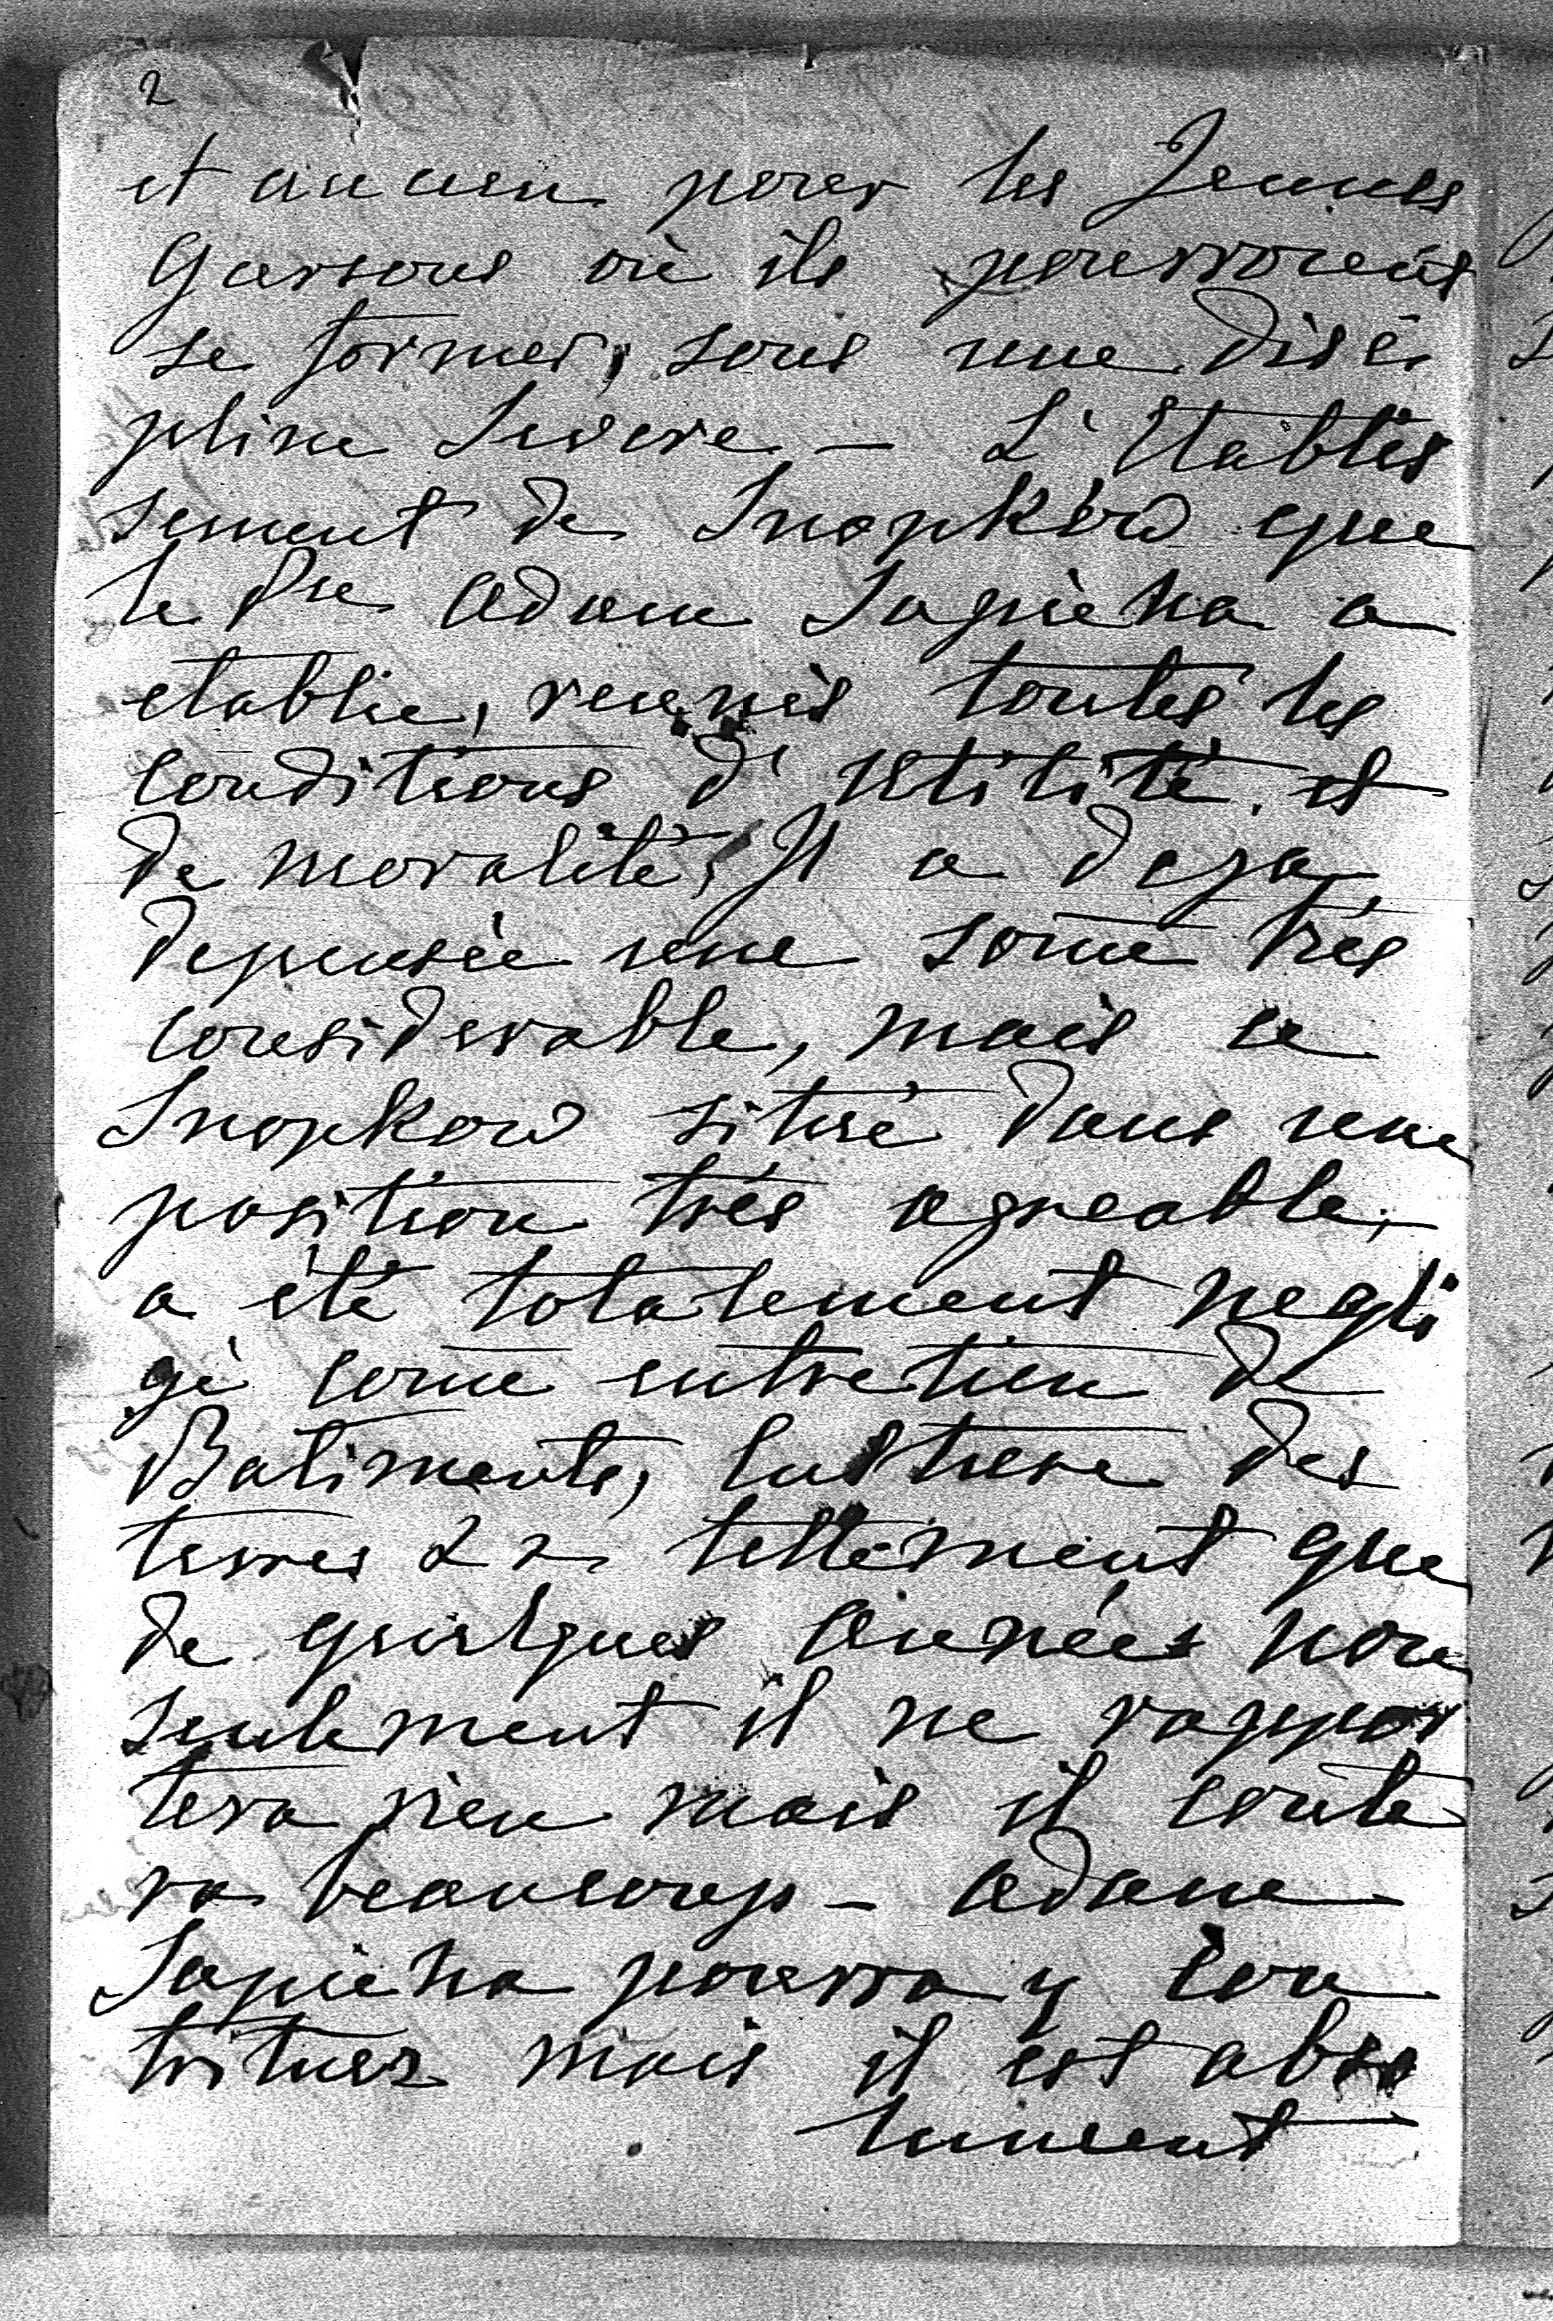 2
et aucun pour les Jeunes
Garsons où ils pourroient
se former, sous une disci
pline Severe – L'Etablis
sement de Snopków que
le Pce Adam Sapieha a
etablie, reunis toutes les
conditions d'utilité et
de moralité, Il a deja
depensée une some très
considerable, mais ce
Snopkow situé dans une
position très agreable,
a été totalement negli
gé come entretien de
Batiments, culture des
terres && tellement que
de quelques années non
seulement il ne rappor
tera rien mais il coute
ra beaucoup – Adam
Sapieha pourra y con
tribuer mais il est abso
lument